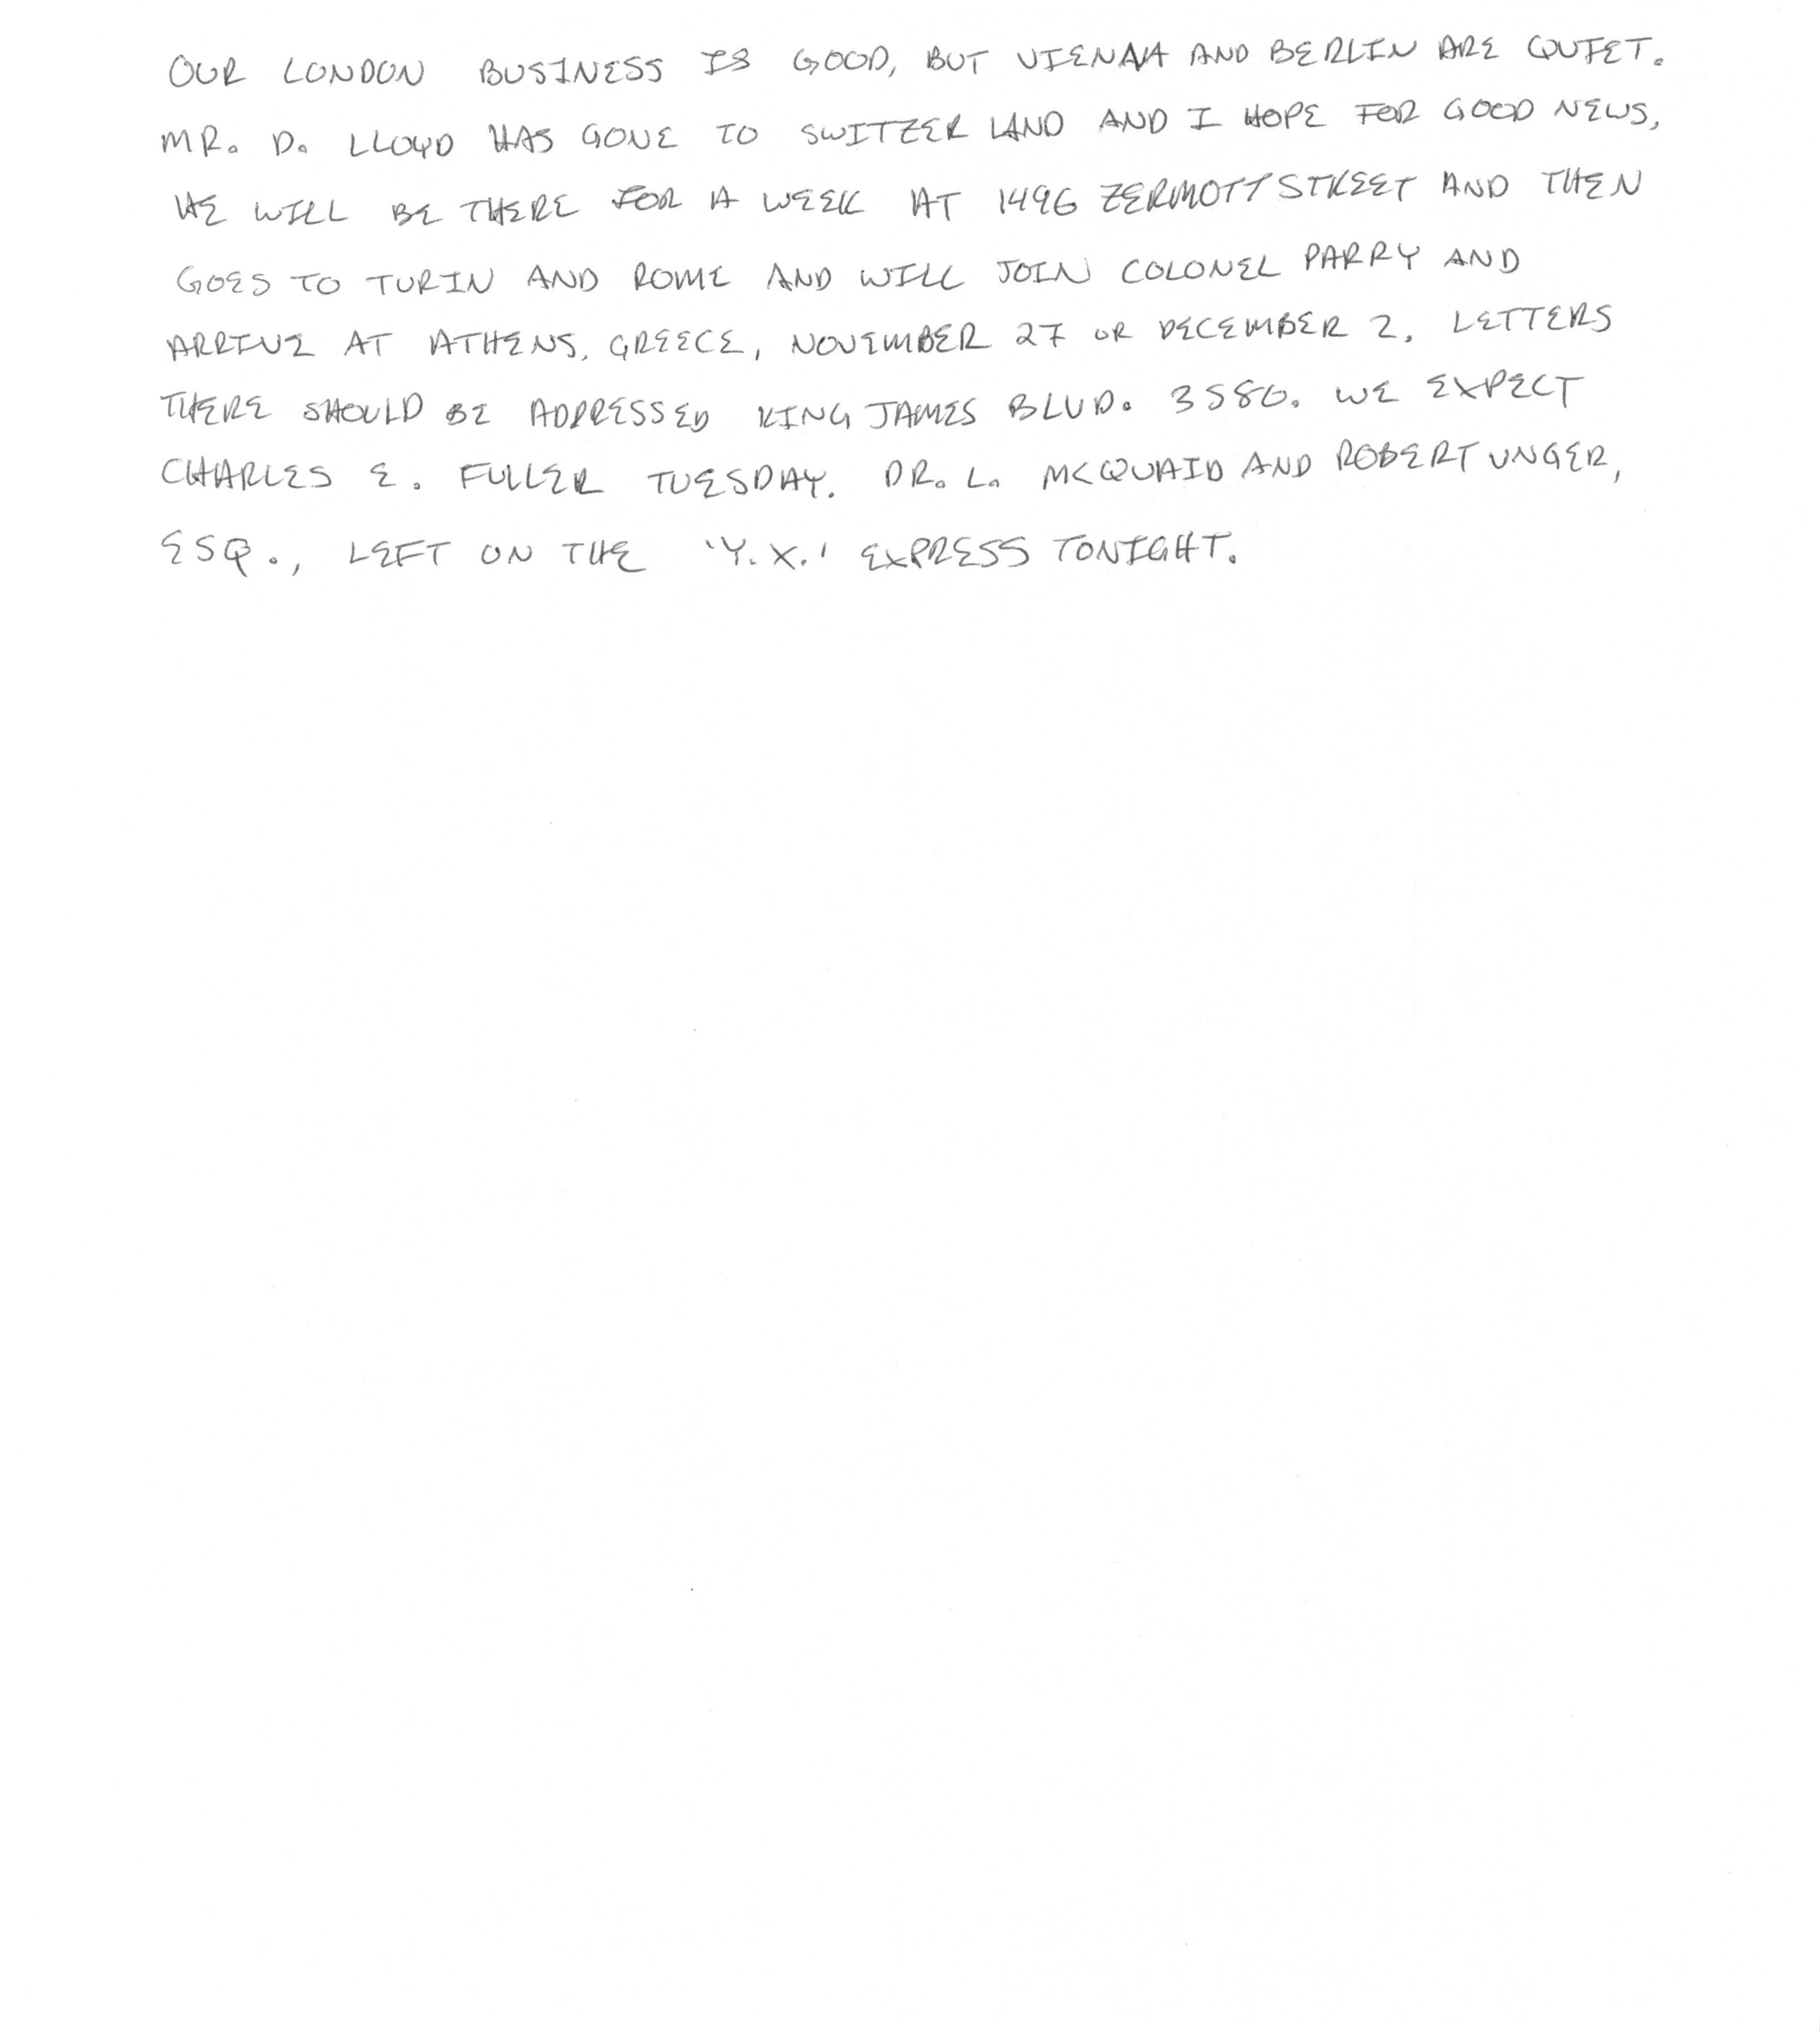 OUR LONDON BUSINESS IS GOOD, BUT VIENNA AND BERLIN ARE QUIET.
MR. D. LLOYD HAS GONE TO SWITZER LAND AND I HOPE FOR GOOD NEWS,
HE WILL BE THERE FOR A WEEK AT 1496 ZERMOTT STREET AND THEN
GOES TO TURIN AND ROME AND WILL JOIN COLONEL PARRY AND
ARRIVE AT ATHENS, GREECE, NOVEMBER 27 OR DECEMBER 2. LETTERS
THERE SHOULD BE ADDRESSED KING JAMES BLVD. 3580. WE EXPECT
CHARLES E. FULLER TUESDAY. DR. L. MCQUAID AND ROBERT UNGER,
ESQ., LEFT ON THE 'Y.X.' EXPRESS TONIGHT.